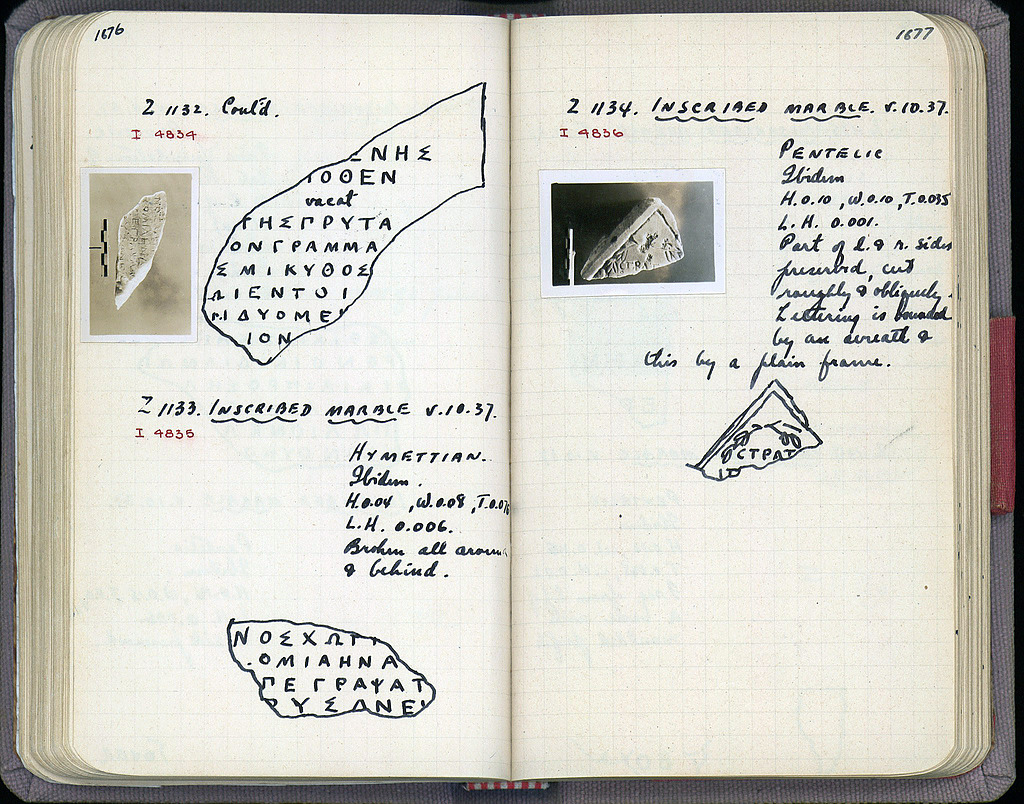 1676
Z 1132. Cont'd.
I 4834
ΕΝΗΣ
ΙΟΘΕΝ
vacat
ΓΗΣΓΡΥΤΑ
ΟΝΓΡΑΜΜΑ
ΣΜΙΚΥΘΟΣ
ΩΙΕΝΤΟΙ
ΙΔΥΟΜΕΙ
ΙΟΝ
Z 1133. INSCRIBED MARBLE v.10.37.
I 4835
HYMETTIAN.
Ibidem.
H.0.04, W.0.08, T.0.07
L.H. 0.006.
Broken all around
& behind.
ΝΟΣΧΩΡΙ
ΟΜΙΛΗΝΑ
ΠΕΓΡΑΨΑΤ
ΡΥΣΑΝΕΙ
1677
Z 1134. INSCRIBED MARBLE. v.10.37.
I 4836
PENTELIC
Ibidem
H.0.10, W.0.10, T.0.035
L.H. 0.001.
Part of l. & r. sides
preserved, cut
roughly & obliquely.
Lettering is bounded
by an wreath &
this by a plain frame.
ΟΣΤΡΑΤ
CΤΡΑΤ